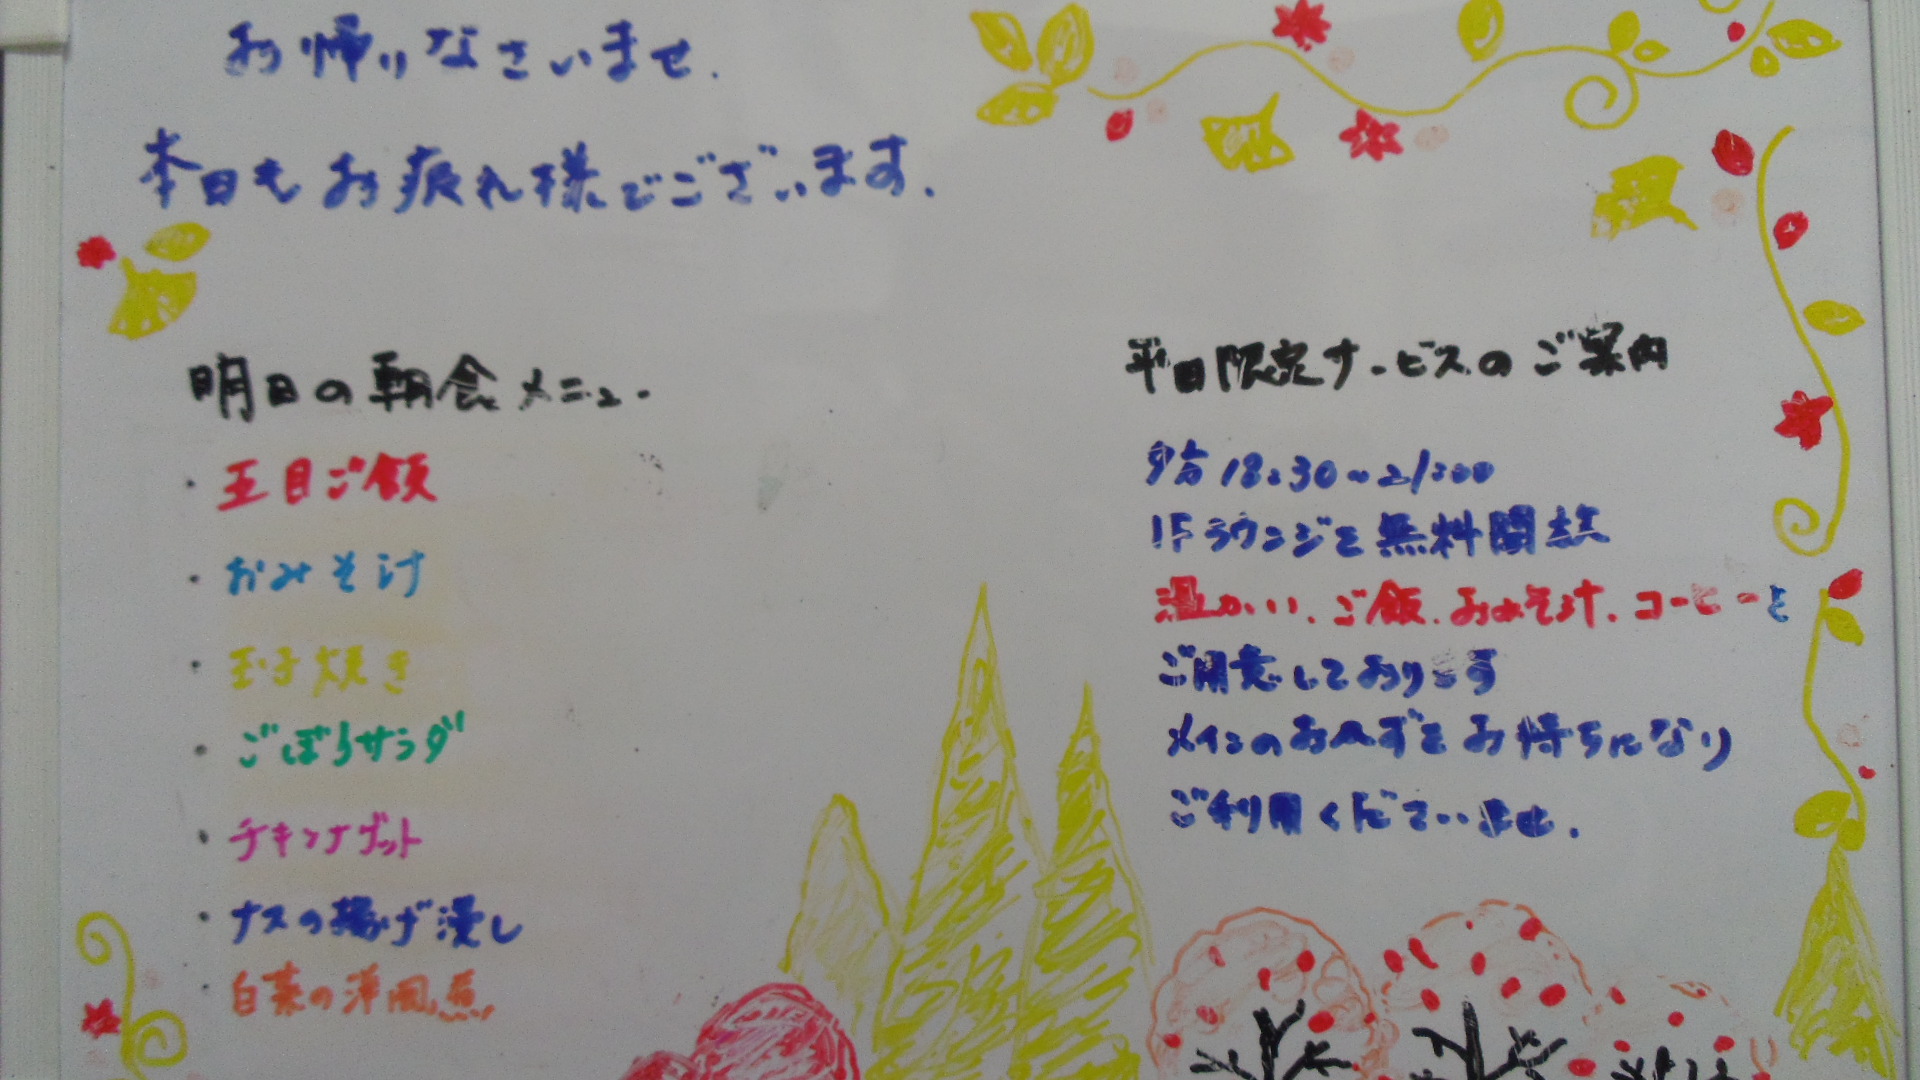 お帰りなさいませ.
本日もお疲れ様でございます.
明日の朝食メニュー
・五目ご飯
・おみそ汁
・玉子焼き
・ごぼうサラダ
・チキンナゲット
・ナスの揚げ浸し
・白菜の洋風煮
平日限定サービスのご案内
夕方18:30~21:00
1Fラウンジを無料開放
温かい、ご飯.おみそ汁.コーヒーを
ご用意しております
メインのおかずをお持ちになり
ご利用くださいませ.